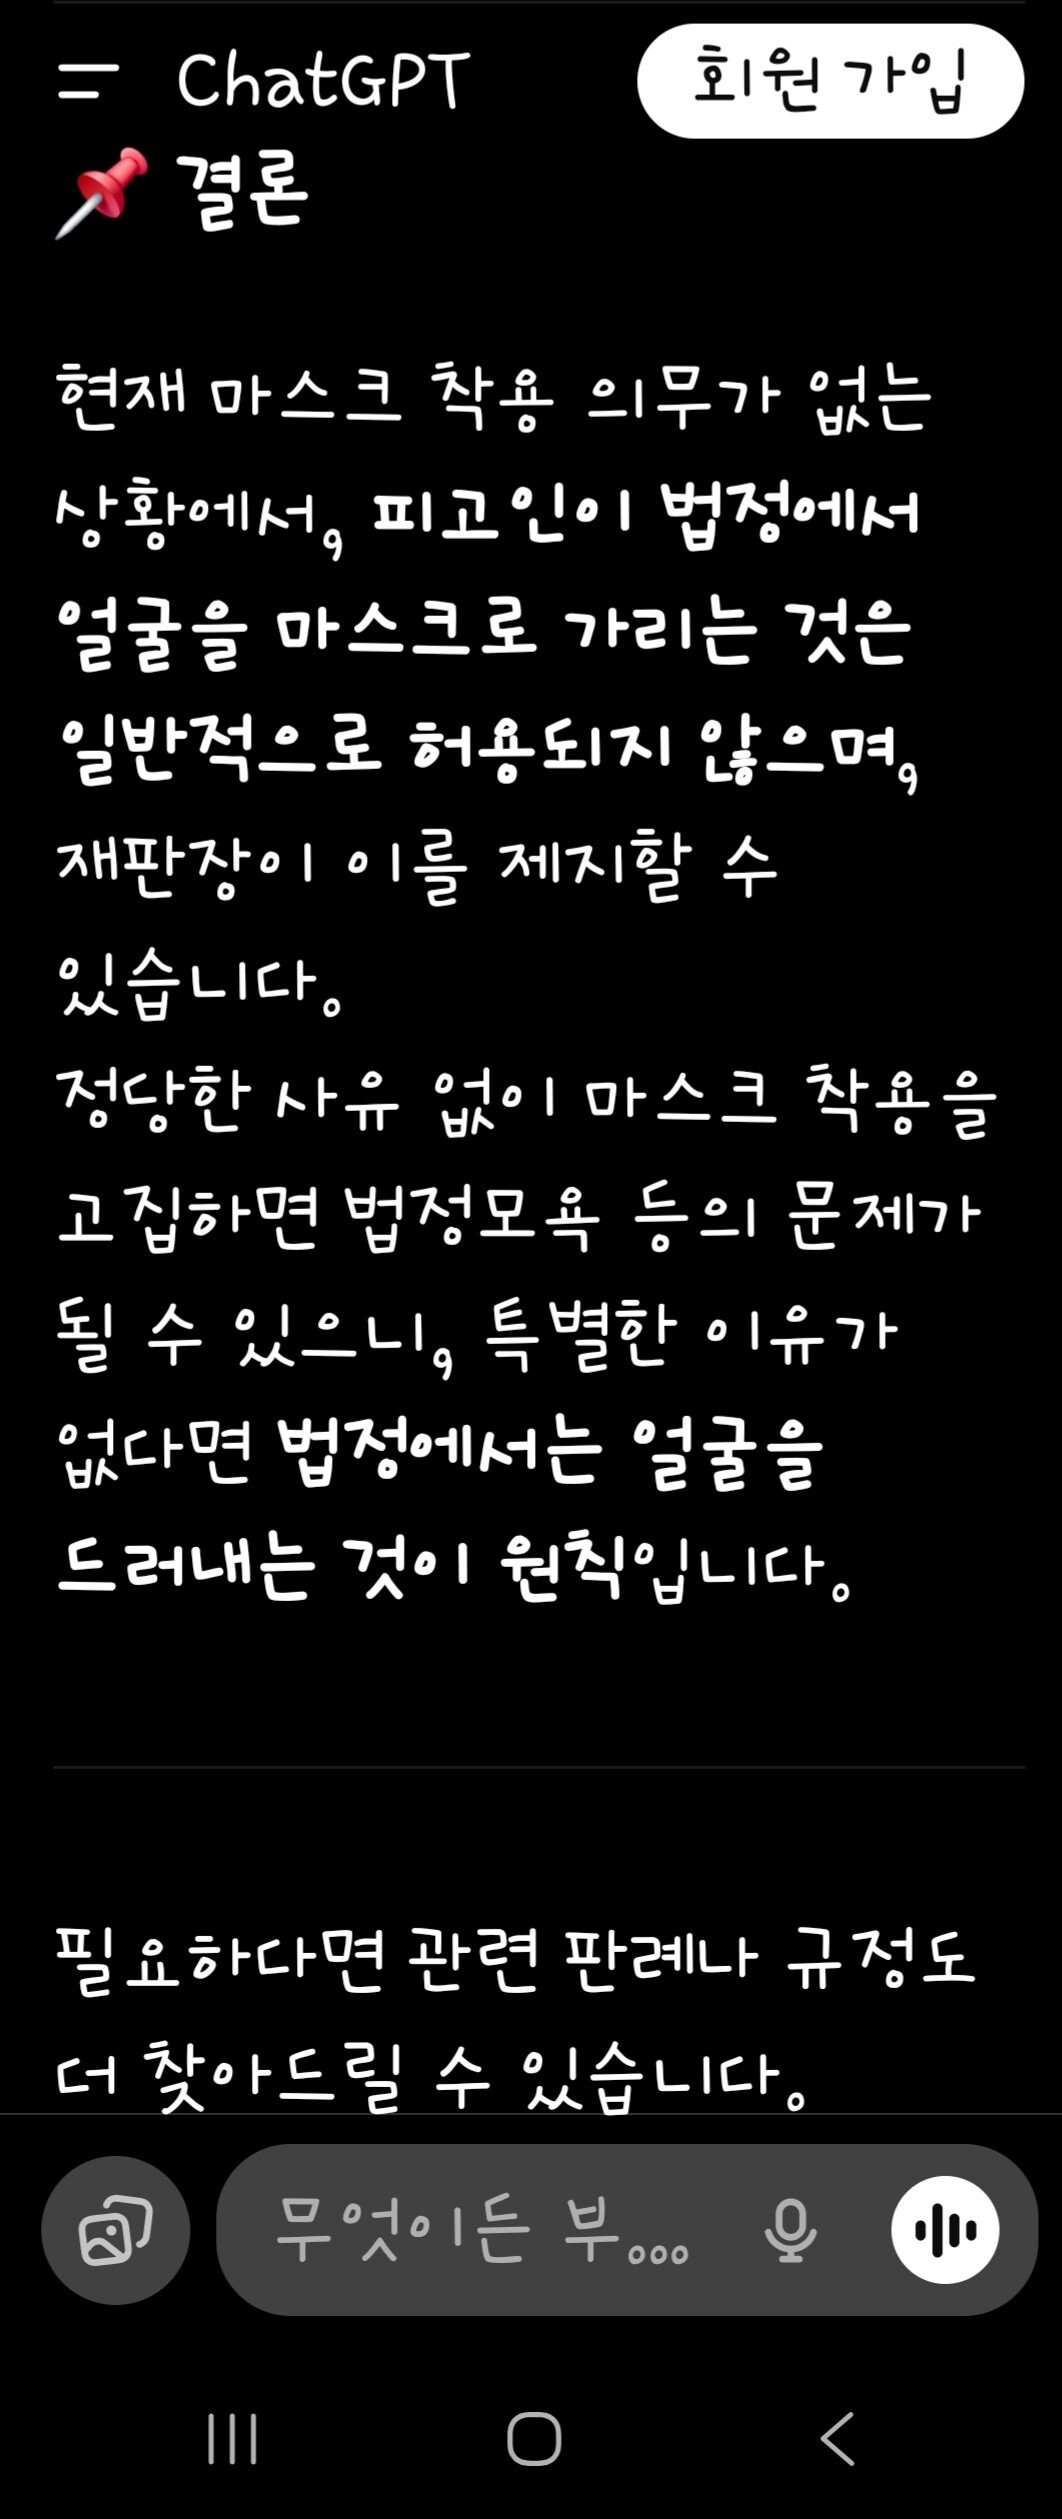 ChatGPT
회원 가입
📌 결론
현재 마스크 착용 의무가 없는
상황에서, 피고인이 법정에서
얼굴을 마스크로 가리는 것은
일반적으로 허용되지 않으며,
재판장이 이를 제지할 수
있습니다.
정당한 사유 없이 마스크 착용을
고집하면 법정모욕 등의 문제가
될 수 있으니, 특별한 이유가
없다면 법정에서는 얼굴을
드러내는 것이 원칙입니다.
필요하다면 관련 판례나 규정도
더 찾아드릴 수 있습니다.
무엇이든 부...